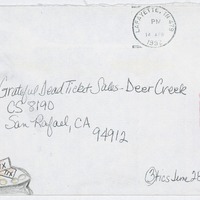 LAFAYETTE, IN 479
PM
Grateful Dead Ticket Sales - Deer Creek
CS 8190
San Rafael, CA
94912
3 tics June 28